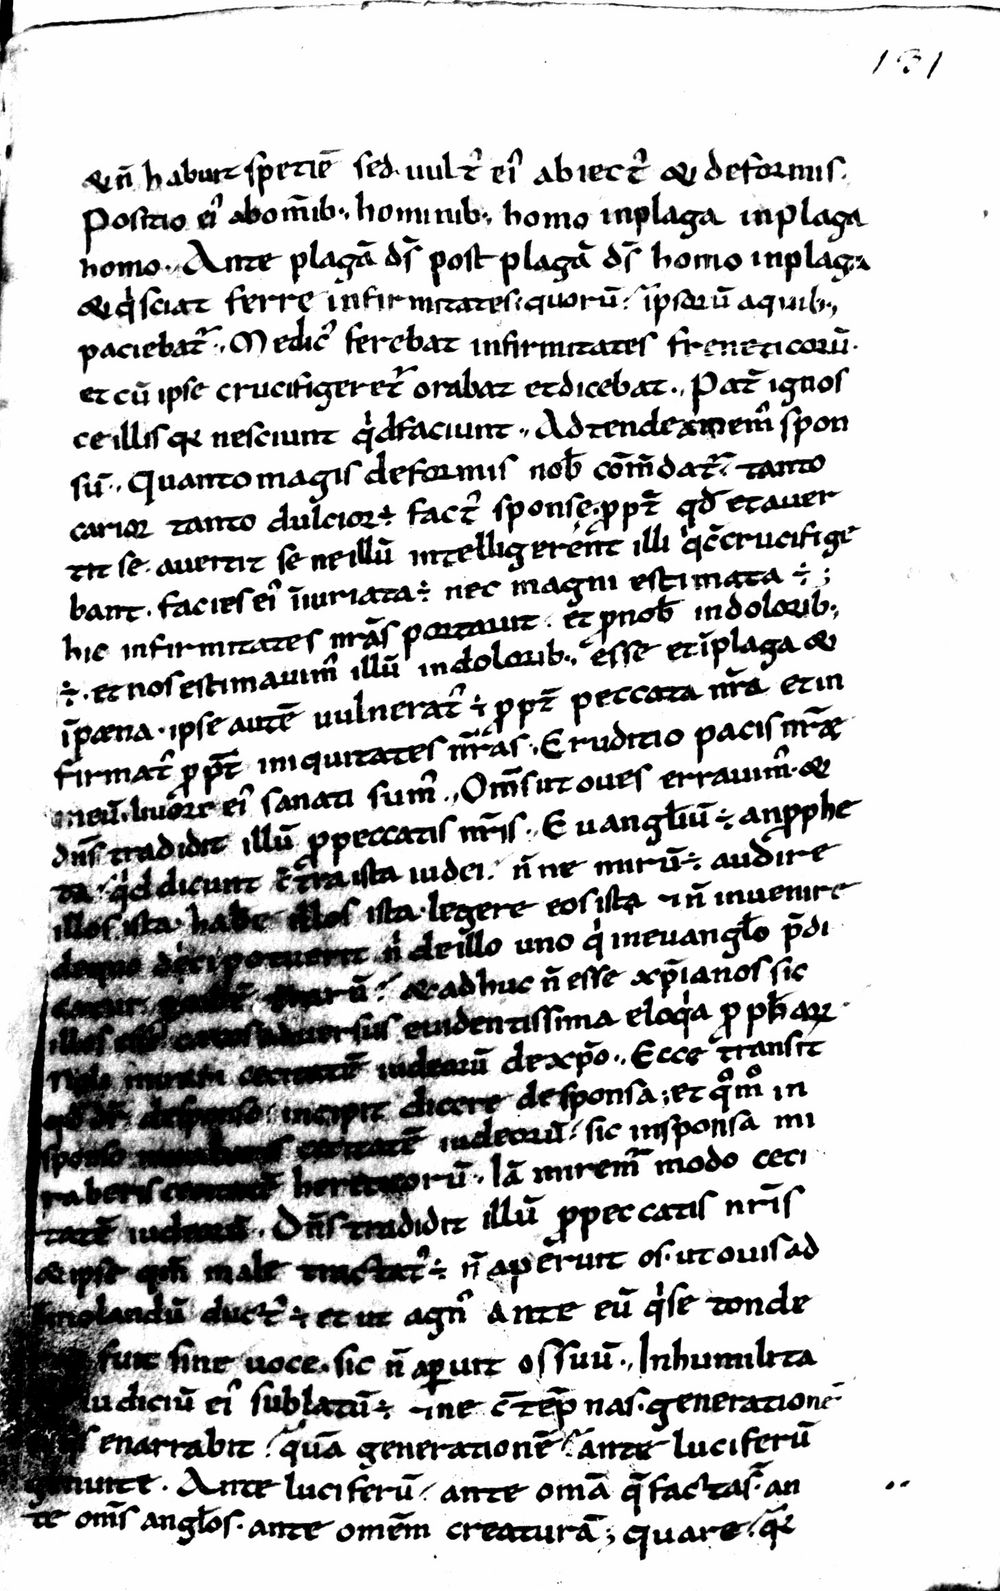 181
& n̄ habuit spetiē sed uult᷒ ei᷒ abiect᷒ & deformis.
Positio ei᷒ abom̄ib·, hominib·, homo inplaga inplaga
homo·, Ante plagā ds̄ post plagā ds̄ homo inplaga
& qͥ sciat ferre infirmitates; quorū; ip̄sorū a quib·,
paciebat᷒·, Medic᷒ ferebat infirmitates freneticorū·
et cū ipse crucifigeret᷒ orabat et dicebat·, Pat̄ ignos
ce illis qꝛ nesciunt qͥd faciunt·, Adtende
sū·, Quanto magis deformis nob̄ com̄dat᷒· tanto
carior tanto dulcior ÷ fact᷒ sponse· ꝓpt̄ qd̄ et auer
tit se· auertit se ne illū intelligerent illi qͥ crucifige
bant· facies ei᷒ iniuriata ÷ nec magni estimata ÷;
hic infirmitates nr̄as portauit· et ꝓ nob̄ in dolorib·,
÷· et nos estimauim᷒ illū in dolorib·, esse et ī plaga &
ī pæna· ipse autē uulnerat᷒ ÷ ꝓpt̄ peccata nr̄a et in
firmat᷒ ꝓpt̄ iniquitates nr̄as·, Eruditio pacis nr̄æ
liuore ei᷒ sanati sum᷒·, Om̄s ut oues errauim᷒· &
dn̄s tradidit illū ꝓ peccatis nr̄is·, Euangliū ÷ an ꝓphe
ta· qͥd dicunt ista iudei· n̄ne mirū ÷ audire
illos ista· habe illos ista· legere eos ista & n̄ inuenire
de quo dici potuerit nͥ de illo uno qͥ in euanglo p̄di
& adhuc n̄ esse xp̄ianos sic
illos esse cecos aduersus euidentissima eloqͥa ꝓphaꝝ
cecitatē iudeorū de xp̄o·, Ecce transit
incipit dicere de sponsa; et qͦmͦ in
sponso cecitatē iudeorū· sic in sponsa mi
raberis hereticorū· Iā mirem᷒ modo ceci
tatē iudeorū· Dn̄s tradidit illū ꝓ peccatis nr̄is
& ipse qm̄ male tractat᷒ ÷ n̄ aperuit os· ut ouis ad
imolandū duct᷒ ÷ et ut agn᷒ ante eū qͥ se tonde
fuit sine uoce· sic n̄ aꝑuit os suū·, In humilita
iudiciū ei᷒ sublatū ÷ generationē
enarrabit; quā generationē; ante luciferū
genui te· Ante luciferū; ante om̄a q̄ facta s̄· an
te om̄s anglos· ante omēm creaturā; quare; qꝛ